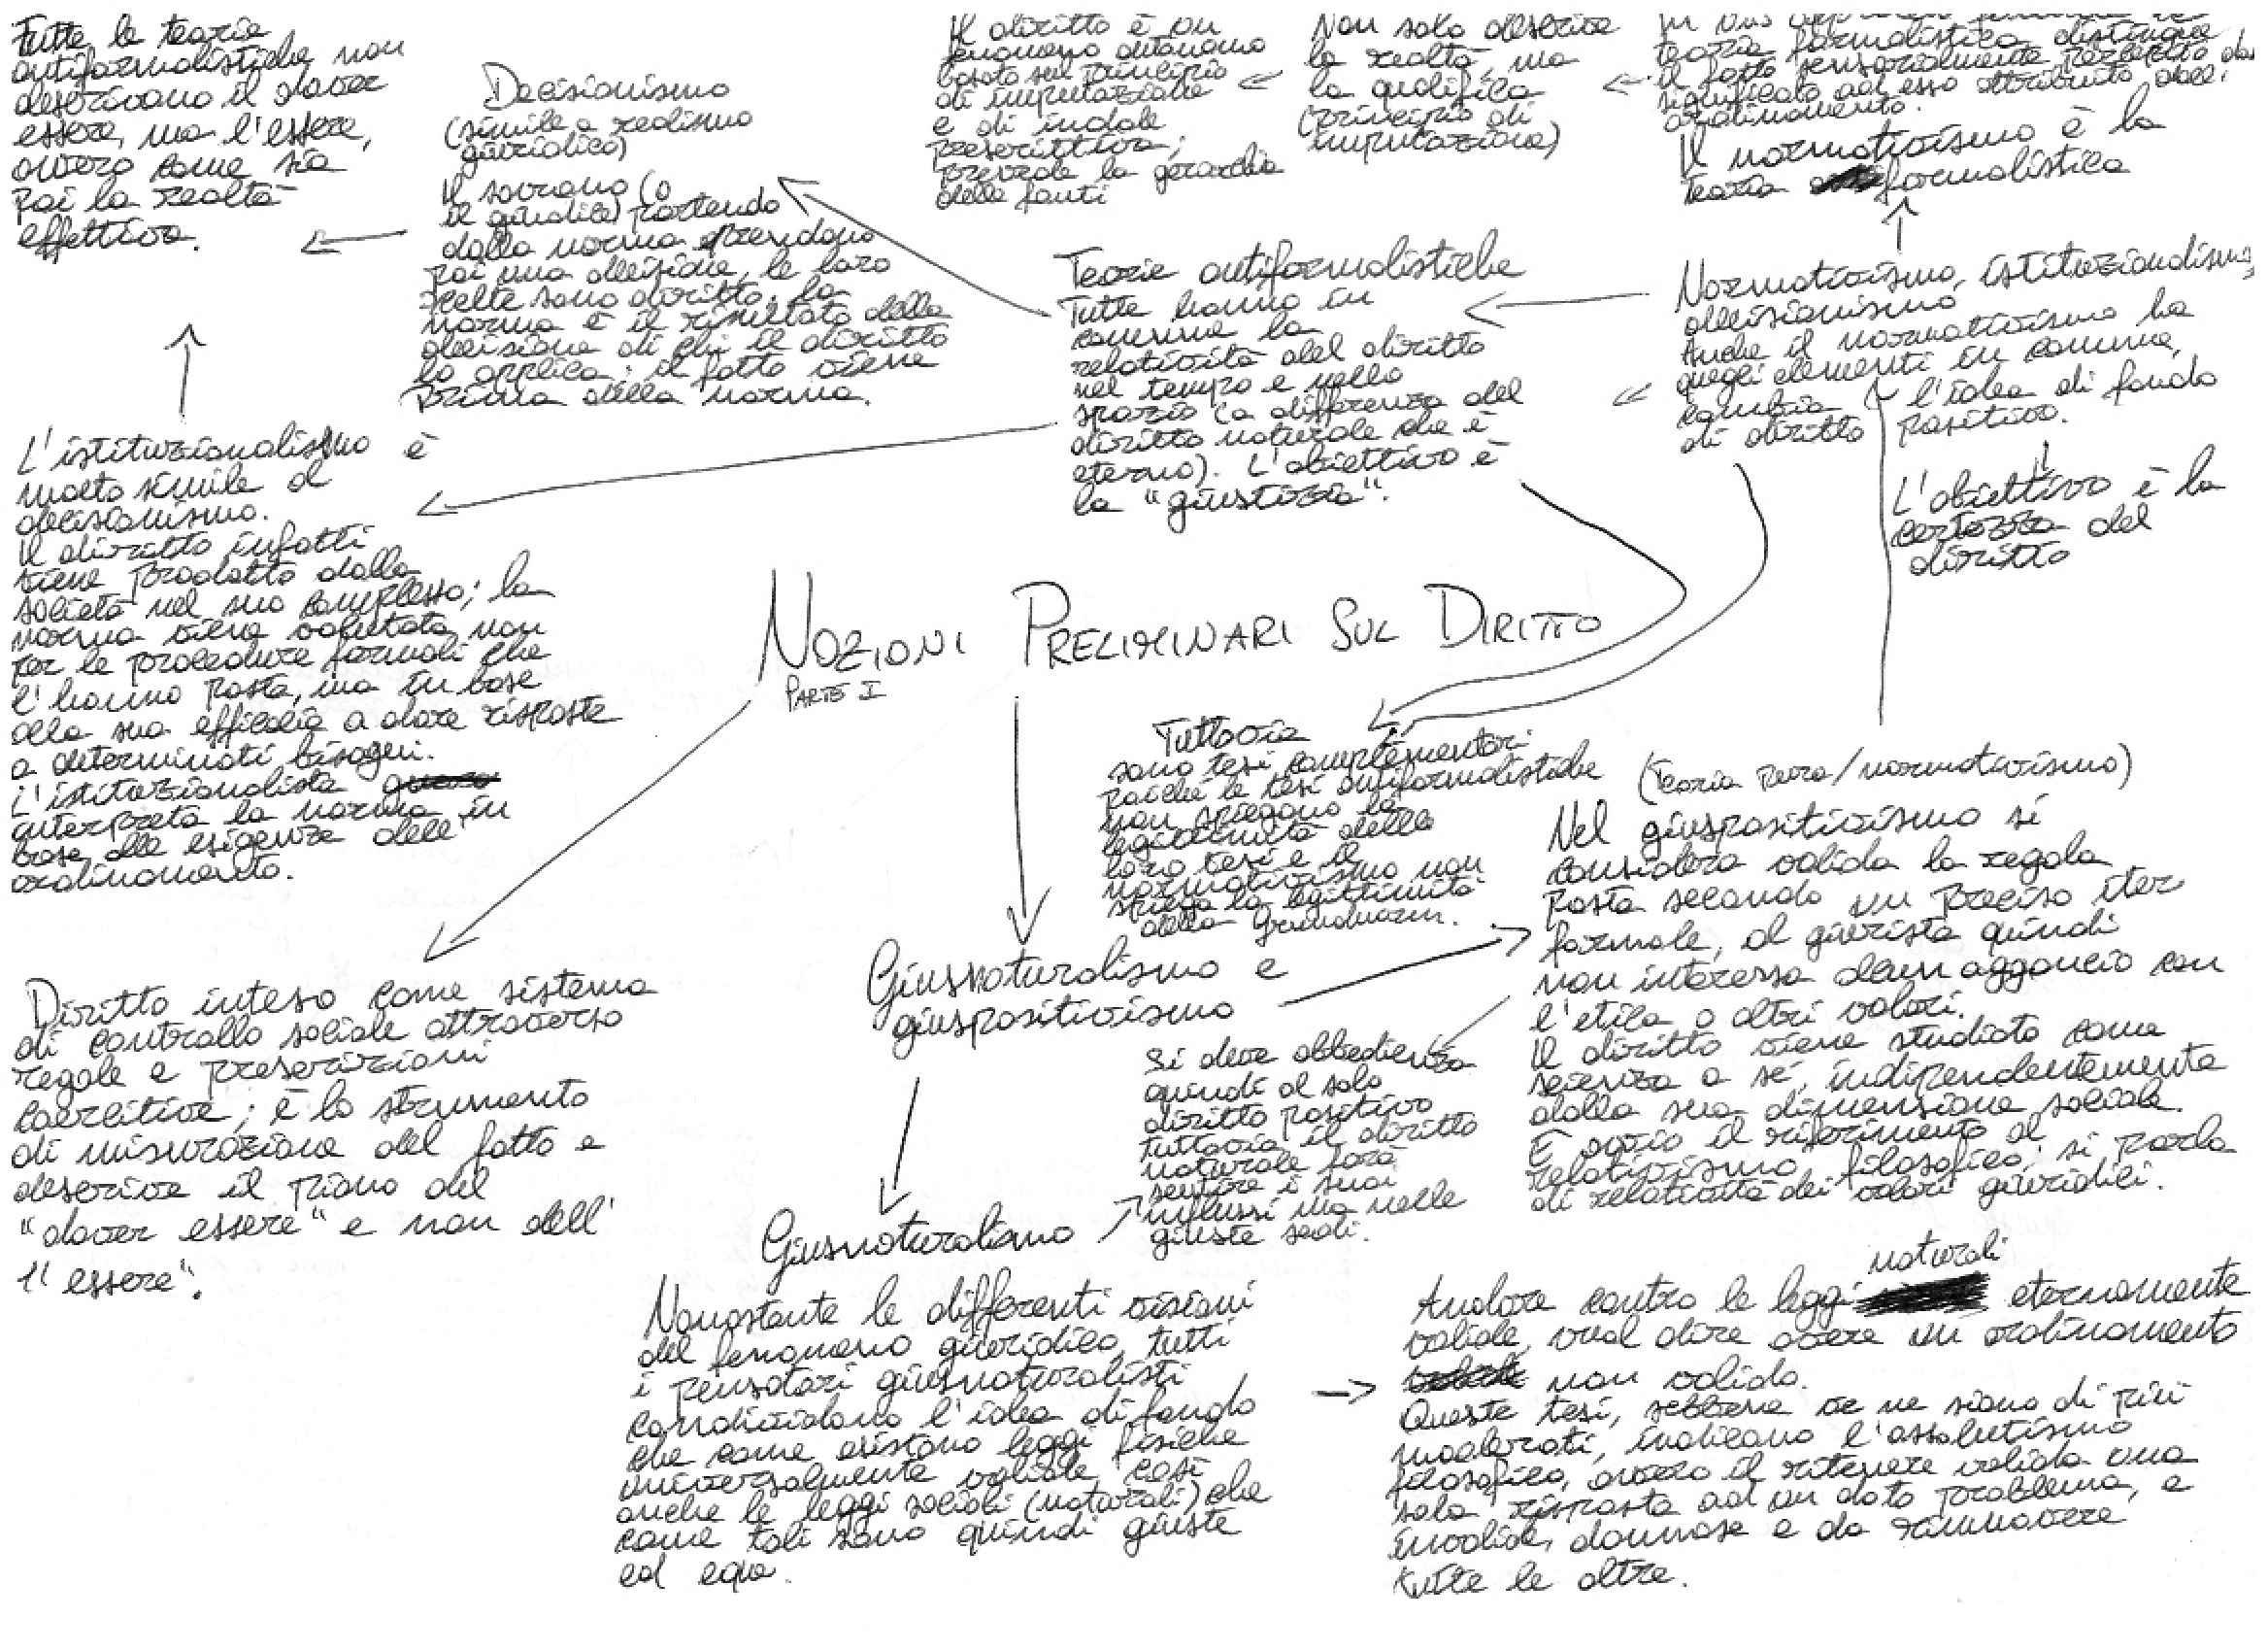 Tutte le teorie
antiformalistiche non
descrivono il dover
essere, ma l'essere,
ovvero come sia
poi la realtà
effettiva.
Decisionismo
(simile a realismo
giuridico)
Il sovrano (o
il giudice) partendo
dalla norma prendono
poi una decisione, le loro
scelte sono diritto. La
norma è il risultato della
decisione di chi il diritto
lo applica: il fatto viene
prima della norma.
Il diritto è un
fenomeno autonomo
basato sul principio
di imputazione
e di indole
prescrittiva;
prevale la gerarchia
delle fonti
Non solo descrive
la realtà, ma
la qualifica
(principio di
imputazione)
teoria formalistica distingue
il fatto sensorialmente percepito dal
significato ad esso attribuito dall'
ordinamento.
Il normativismo è la
teoria formalistica
Teorie antiformalistiche
Tutte hanno in
comune la
relatività del diritto
nel tempo e nello
spazio (a differenza del
diritto naturale che è
eterno). L'obiettivo è
la "giustizia".
Normativismo, istituzionalismo,
decisionismo
Anche il normativismo ha
quegli elementi in comune,
cambia l'idea di fondo
di diritto positivo.
L'obiettivo è la
certezza del
diritto
L'istituzionalismo è
molto simile al
decisionismo.
Il diritto infatti
viene prodotto dalla
società nel suo complesso; la
norma viene valutata non
per le procedure formali che
l'hanno posta, ma in base
alla sua efficacia a dare risposte
a determinati bisogni.
L'istituzionalista
interpreta la norma in
base alle esigenze dell'
ordinamento.
Nozioni Preliminari Sul Diritto
Parte I
Tuttavia
sono tesi complementari
poiché le tesi antiformalistiche
non spiegano la
legittimità delle
loro tesi e il
normativismo non
spiega la legittimità
della Grundnorm.
(Teoria pura/normativismo)
Nel giuspositivismo si
considera valida la regola
posta secondo un preciso iter
formale, al giurista quindi
non interessa alcun aggancio con
l'etica o altri valori.
Il diritto viene studiato come
scienza a sé, indipendentemente
dalla sua dimensione sociale.
È ovvio il riferimento al
relativismo filosofico; si parla
di relatività dei valori giuridici.
Giusnaturalismo e
giuspositivismo
Si deve obbedienza
quindi al solo
diritto positivo
tuttavia il diritto
naturale farà
sentire i suoi
influssi ma nelle
giuste sedi.
Diritto inteso come sistema
di controllo sociale attraverso
regole e prescrizioni
coercitive; è lo strumento
di misurazione del fatto e
descrive il piano del
"dover essere" e non dell'
"essere".
Giusnaturalismo
Nonostante le differenti visioni
del fenomeno giuridico, tutti
i pensatori giusnaturalisti
condividono l'idea di fondo
che come esistono leggi fisiche
universalmente valide, così
anche le leggi sociali (naturali) che
come tali sono quindi giuste
ed eque.
Andare contro le leggi naturali eternamente
valide, vuol dire avere un ordinamento
non valido.
Queste tesi, sebbene ve ne siano di più
moderati, indicano l'assolutismo
filosofico, ovvero il ritenere valida una
sola risposta ad un dato problema, e
invalide, dannose e da rimuovere
tutte le altre.